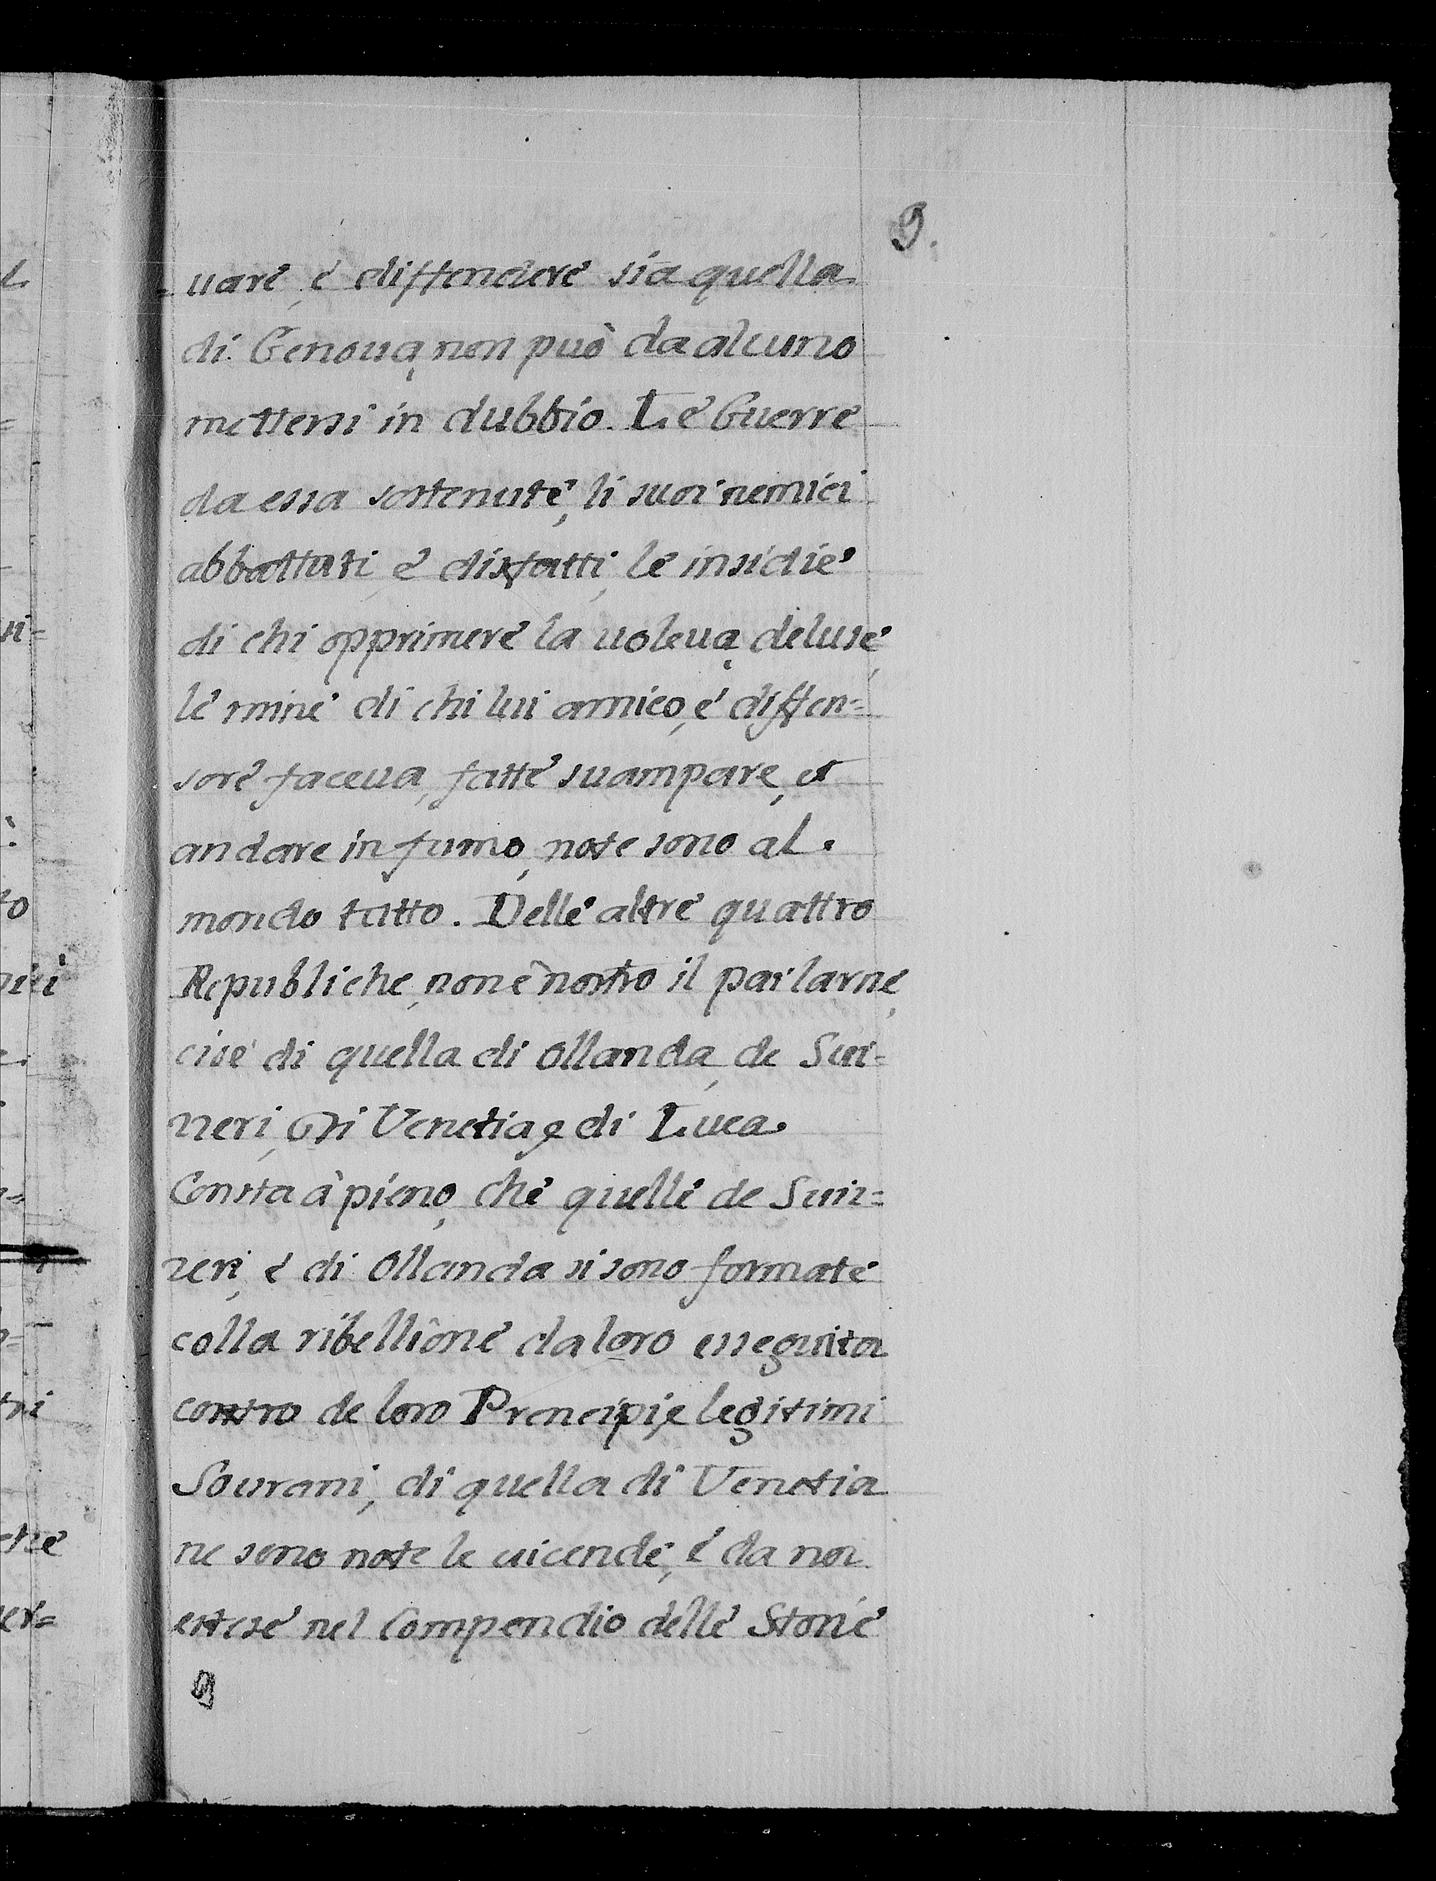 9.
uare, è diffendere sia quella
di Genoua, non può da alcuno
mettersi in dubbio. Le Guerre
da essa sostenute, li suoi nemici
abbattuti, e disfatti, le insidie
di chi opprimere la uoleua, deluse,
le mine di chi lui amico, e diffen=
sore faceua, fatte suampare, et
andare in fumo, note sono al
mondo tutto. Delle altre quattro
Republiche, non è nostro il parlarne,
cioè di quella di Ollanda, de Sui=
zeri, di Venetia, e di Luca.
Consta à pieno, che quelle de Sui=
zeri, e di Ollanda si sono formate
colla ribellione da loro esseguita
contro de loro Prencipi, e legitimi
Sourani, di quella di Venetia
ne sono note le uicende, e da noi
estese nel Compendio delle Storie
9